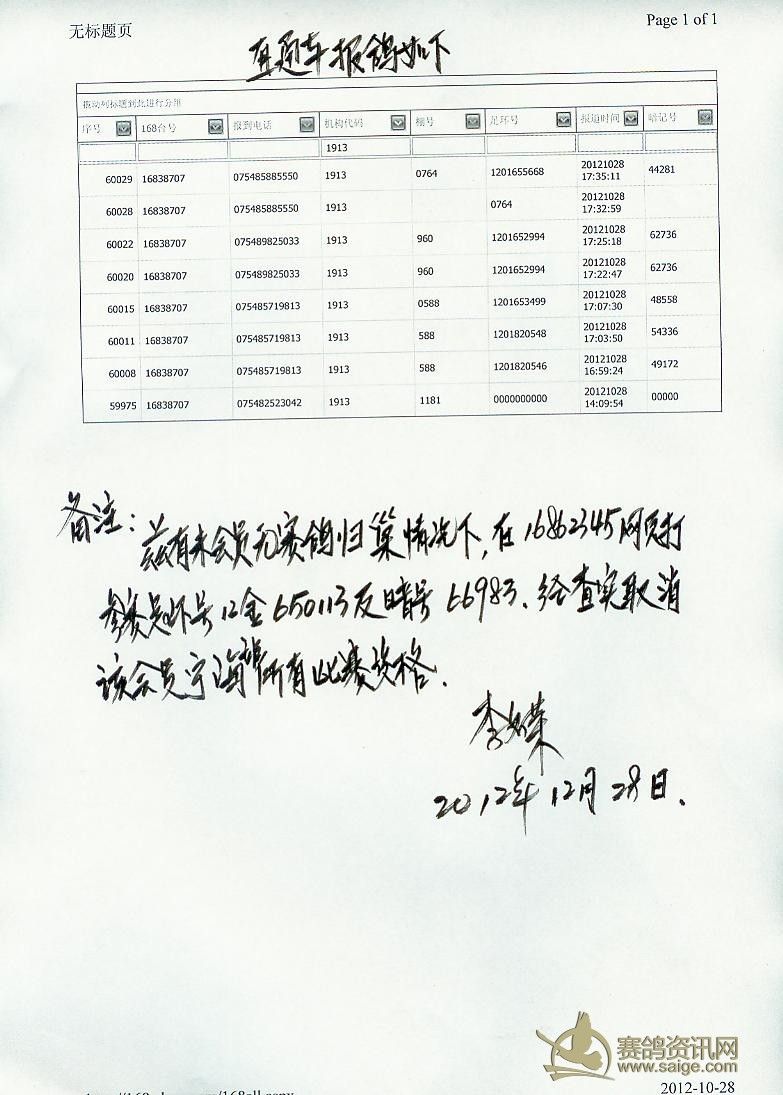 无标题页 Page 1 of 1
直通车报鸽如下
拖动列标题到此进行分组
序号 168台号 报到电话 机构代码 棚号 足环号 报道时间 暗记号
1913
60029 16838707 075485885550 1913 0764 1201655668 20121028 17:35:11 44281
60028 16838707 075485885550 1913 0764 20121028 17:32:59
60022 16838707 075489825033 1913 960 1201652994 20121028 17:25:18 62736
60020 16838707 075489825033 1913 960 1201652994 20121028 17:22:47 62736
60015 16838707 075485719813 1913 0588 1201653499 20121028 17:07:30 48558
60011 16838707 075485719813 1913 588 1201820548 20121028 17:03:50 54336
60008 16838707 075485719813 1913 588 1201820546 20121028 16:59:24 49172
59975 16838707 075482523042 1913 1181 0000000000 20121028 14:09:54 00000
备注:
兹有未会员无赛鸽归巢情况下,在16862345网页打
参赛足环号12金650113及暗号66983.经查实取消
该会员宁海 所有比赛资格.
李 荣
2012年12月28日.
赛鸽资讯网
www.saige.com
2012-10-28